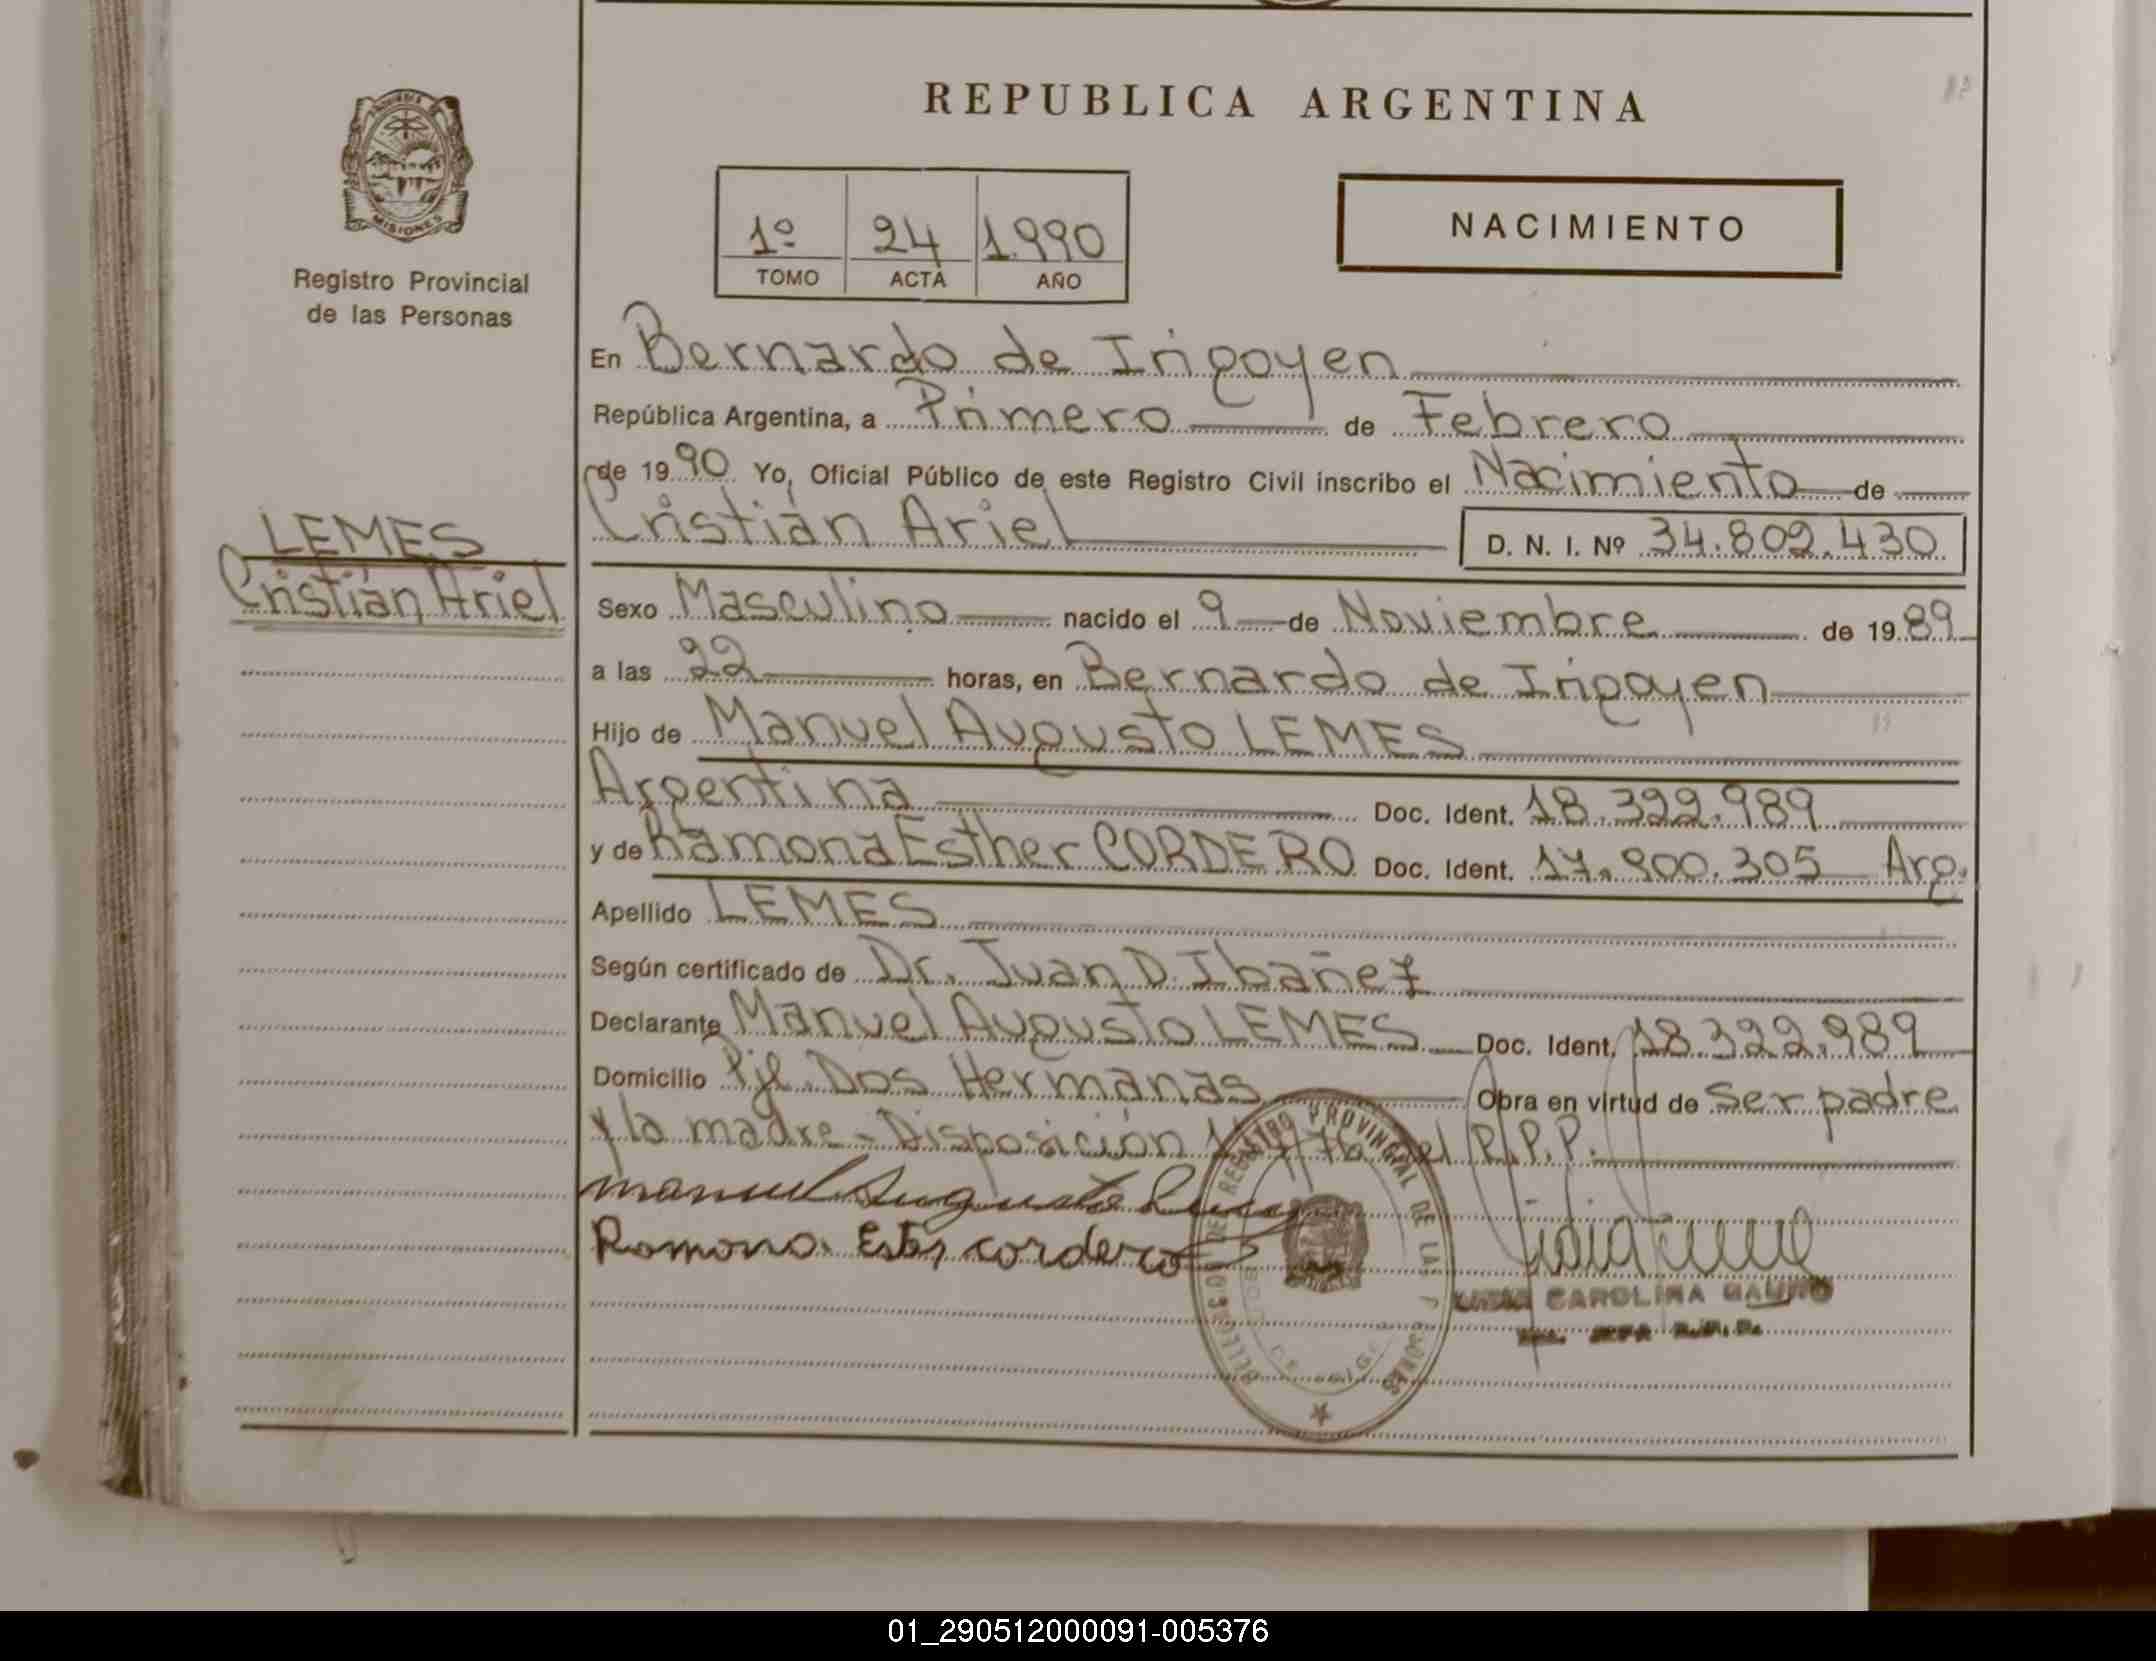 REPUBLICA ARGENTINA
MISIONES
Registro Provincial
de las Personas
1º 24 1.990
TOMO ACTA AÑO
NACIMIENTO
En Bernardo de Irigoyen
República Argentina, a Primero de Febrero
de 1990 Yo, Oficial Público de este Registro Civil inscribo el Nacimiento de
Cristián Ariel D. N. I. Nº 34.802.430
LEMES
Cristián Ariel
Sexo Masculino nacido el 9 de Noviembre de 1989
a las 22 horas, en Bernardo de Irigoyen
Hijo de Manuel Augusto LEMES
Argentina Doc. Ident. 18.322.989
y de Ramona Esther CORDERO Doc. Ident. 17.900.305 Arg.
Apellido LEMES
Según certificado de Dr. Juan D. Ibañez
Declarante Manuel Augusto LEMES Doc. Ident. 18.322.989
Domicilio Pje. Dos Hermanas Obra en virtud de ser padre
y la madre - Disposición del R.P.P.
manuel Augusto
Ramona Ester cordero
REGISTRO PROVINCIAL DE LAS
CAROLINA
01_290512000091-005376